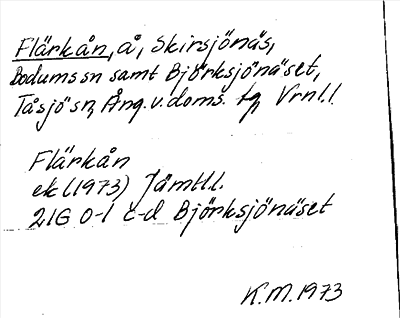 Flärkån, å, Skirsjönäs,
Bodums sn samt Björksjönäset,
Tåsjö sn, Ång. v. doms. tg Vrnl.l.
Flärkån
ek (1973) Jämtl.l.
21G 0-1 c-d Björksjönäset
K.M. 1973